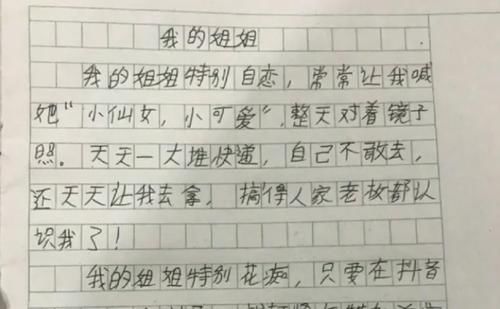 我的姐姐
我的姐姐特别自恋，常常让我喊
她“小仙女，小可爱”，整天对着镜子
照。天天一大堆快递，自己不敢去，
还天天让我去拿，搞得人家老板都认
识我了！
我的姐姐特别花痴，只要在抖音